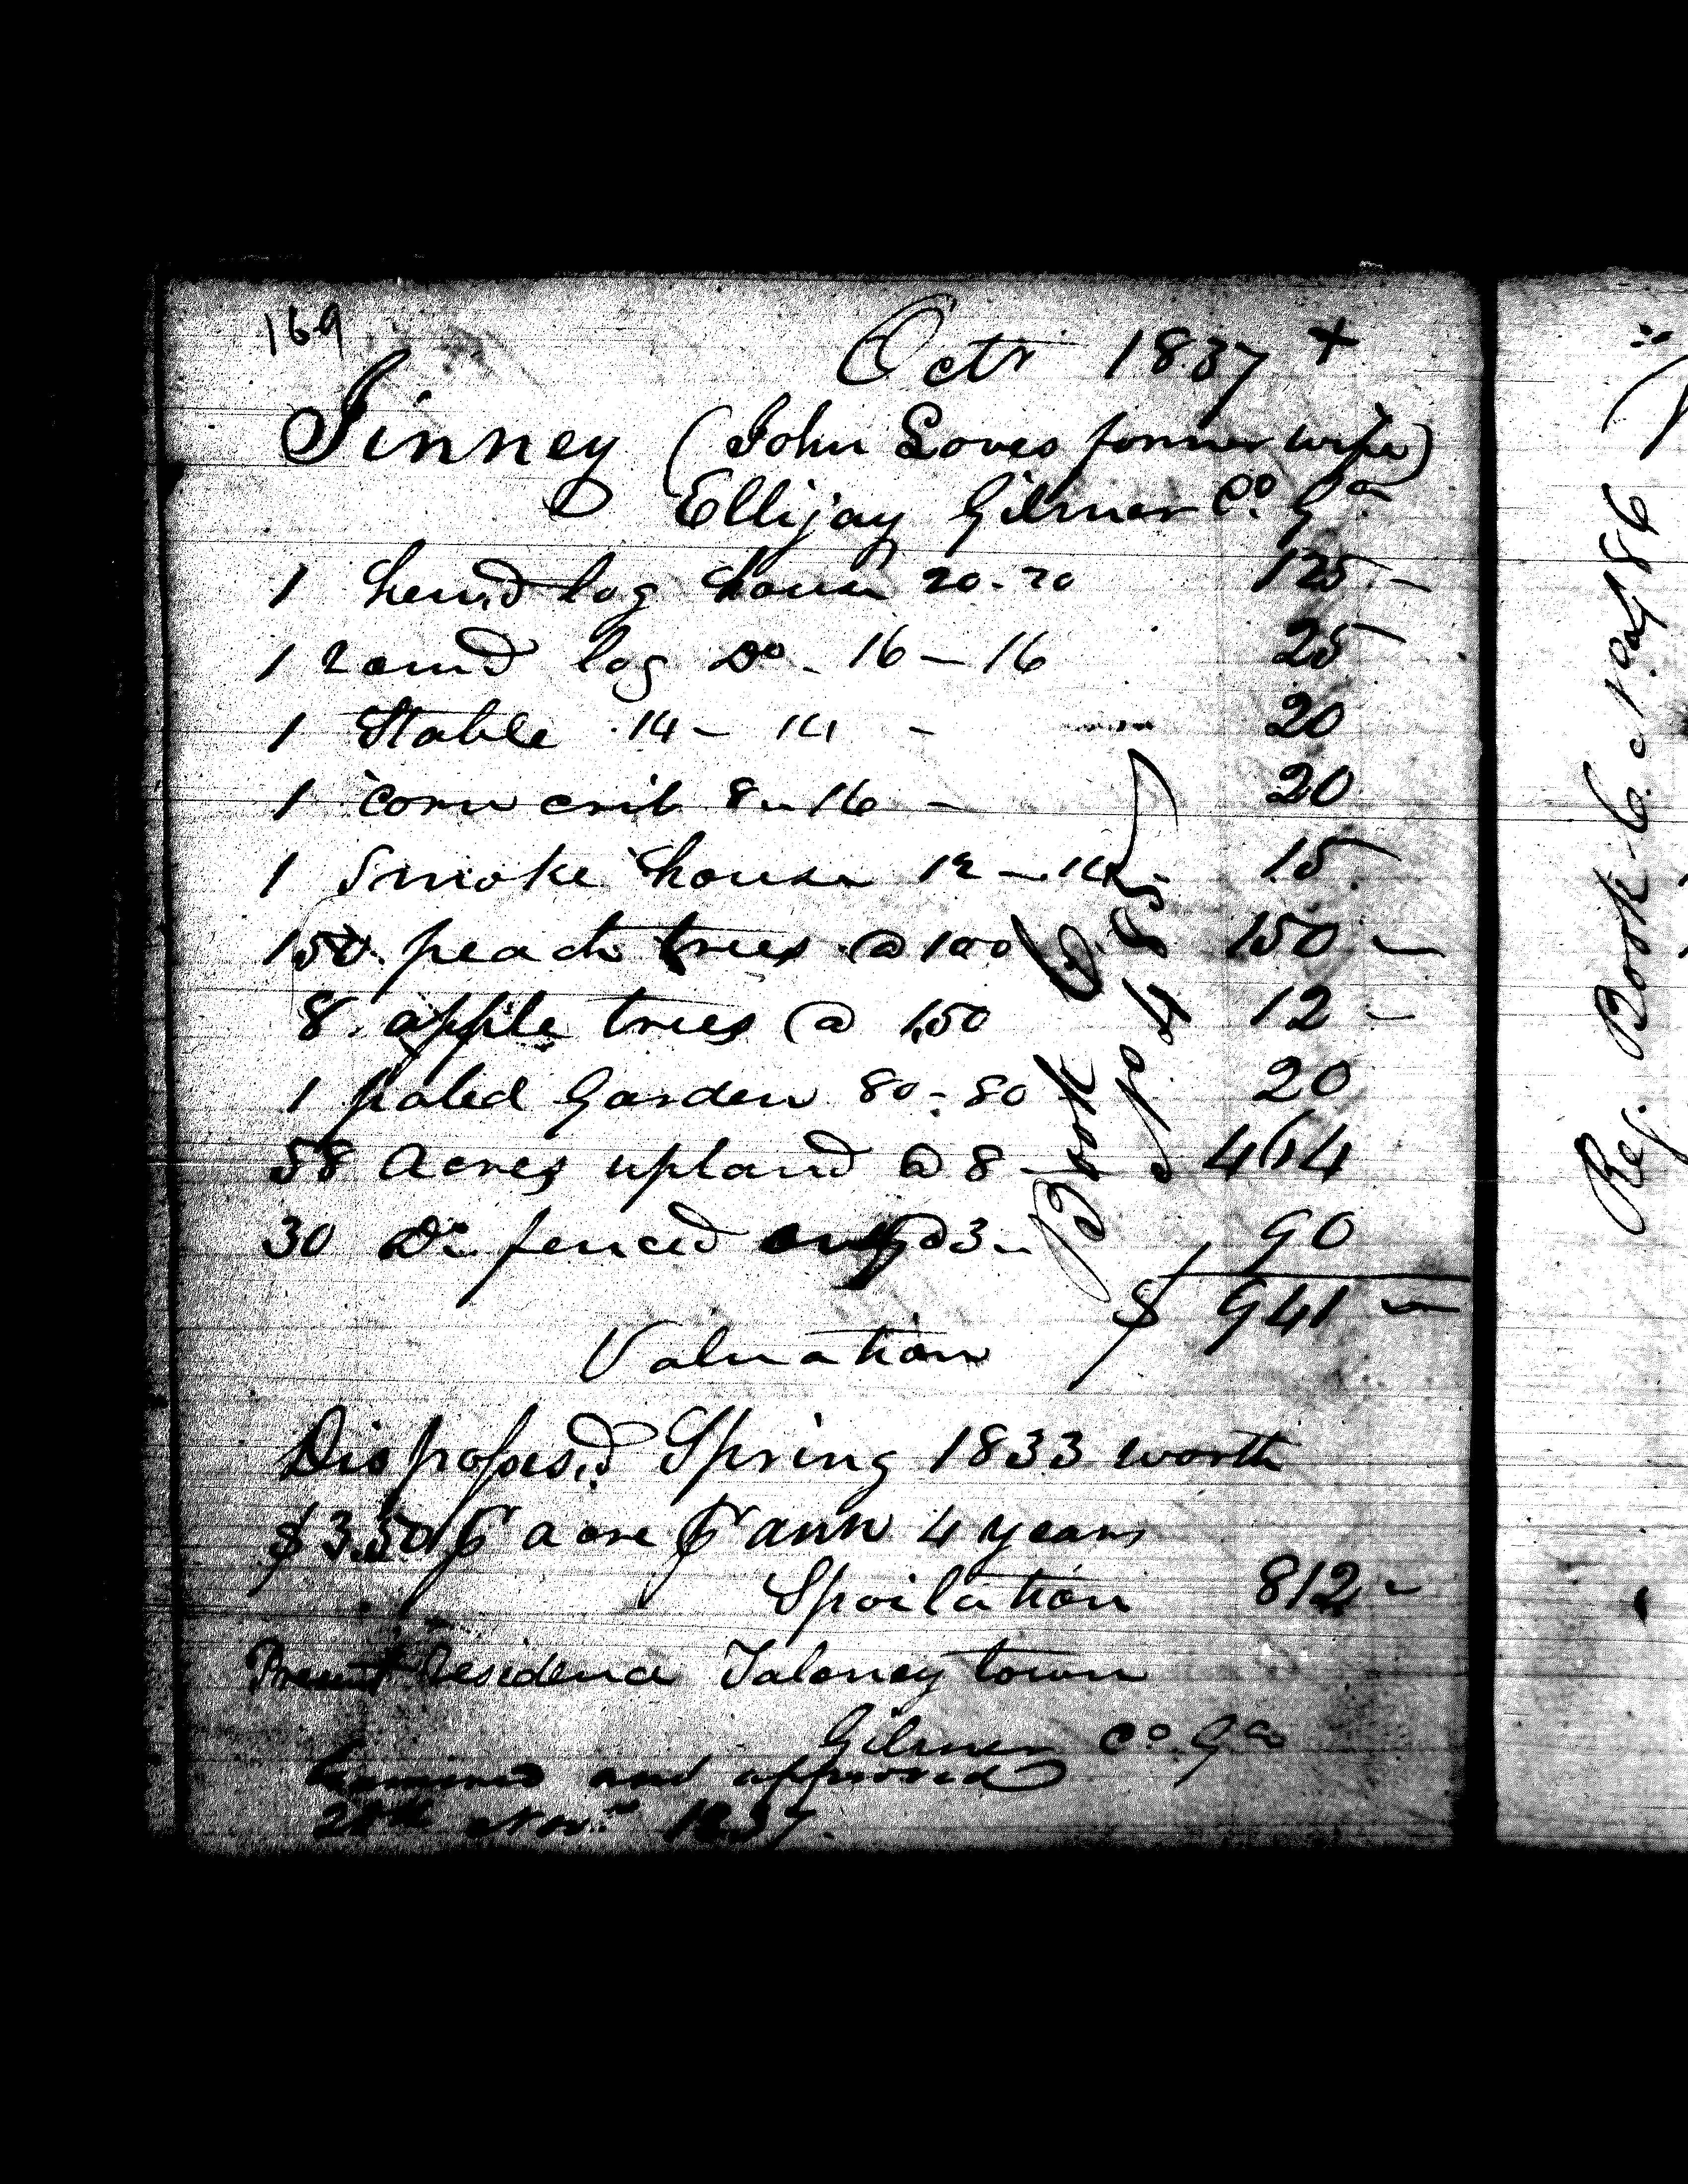 169
Octr 1837 +
Jinney (John Loves former wife)
Ellijay Gilmer Co. Ga
1 hewd log house 20-20 125 -
1 round log Do. 16-16 25 -
1 Stable 14 - 14 - 20
1 corn crib 8 - 16 - 20
1 Smoke house 12 - 14 15 -
150 peach trees @ 100 150 -
8 apple trees @ 1.50 12 -
1 paled Garden 80-80 20
58 Acres upland @ 8 - 464
30 Do fenced only @ 3 - 90
$ 941 -
Valuation
Book B
No 485
Dispossesd Spring 1833 worth
$3.50 p acre pr ann 4 years
Spoilation 812 -
Present Residence Taloney town
Gilmer Co. Ga
Examined and approved
Nov. 1837.
Reg. Book 6. No. 486